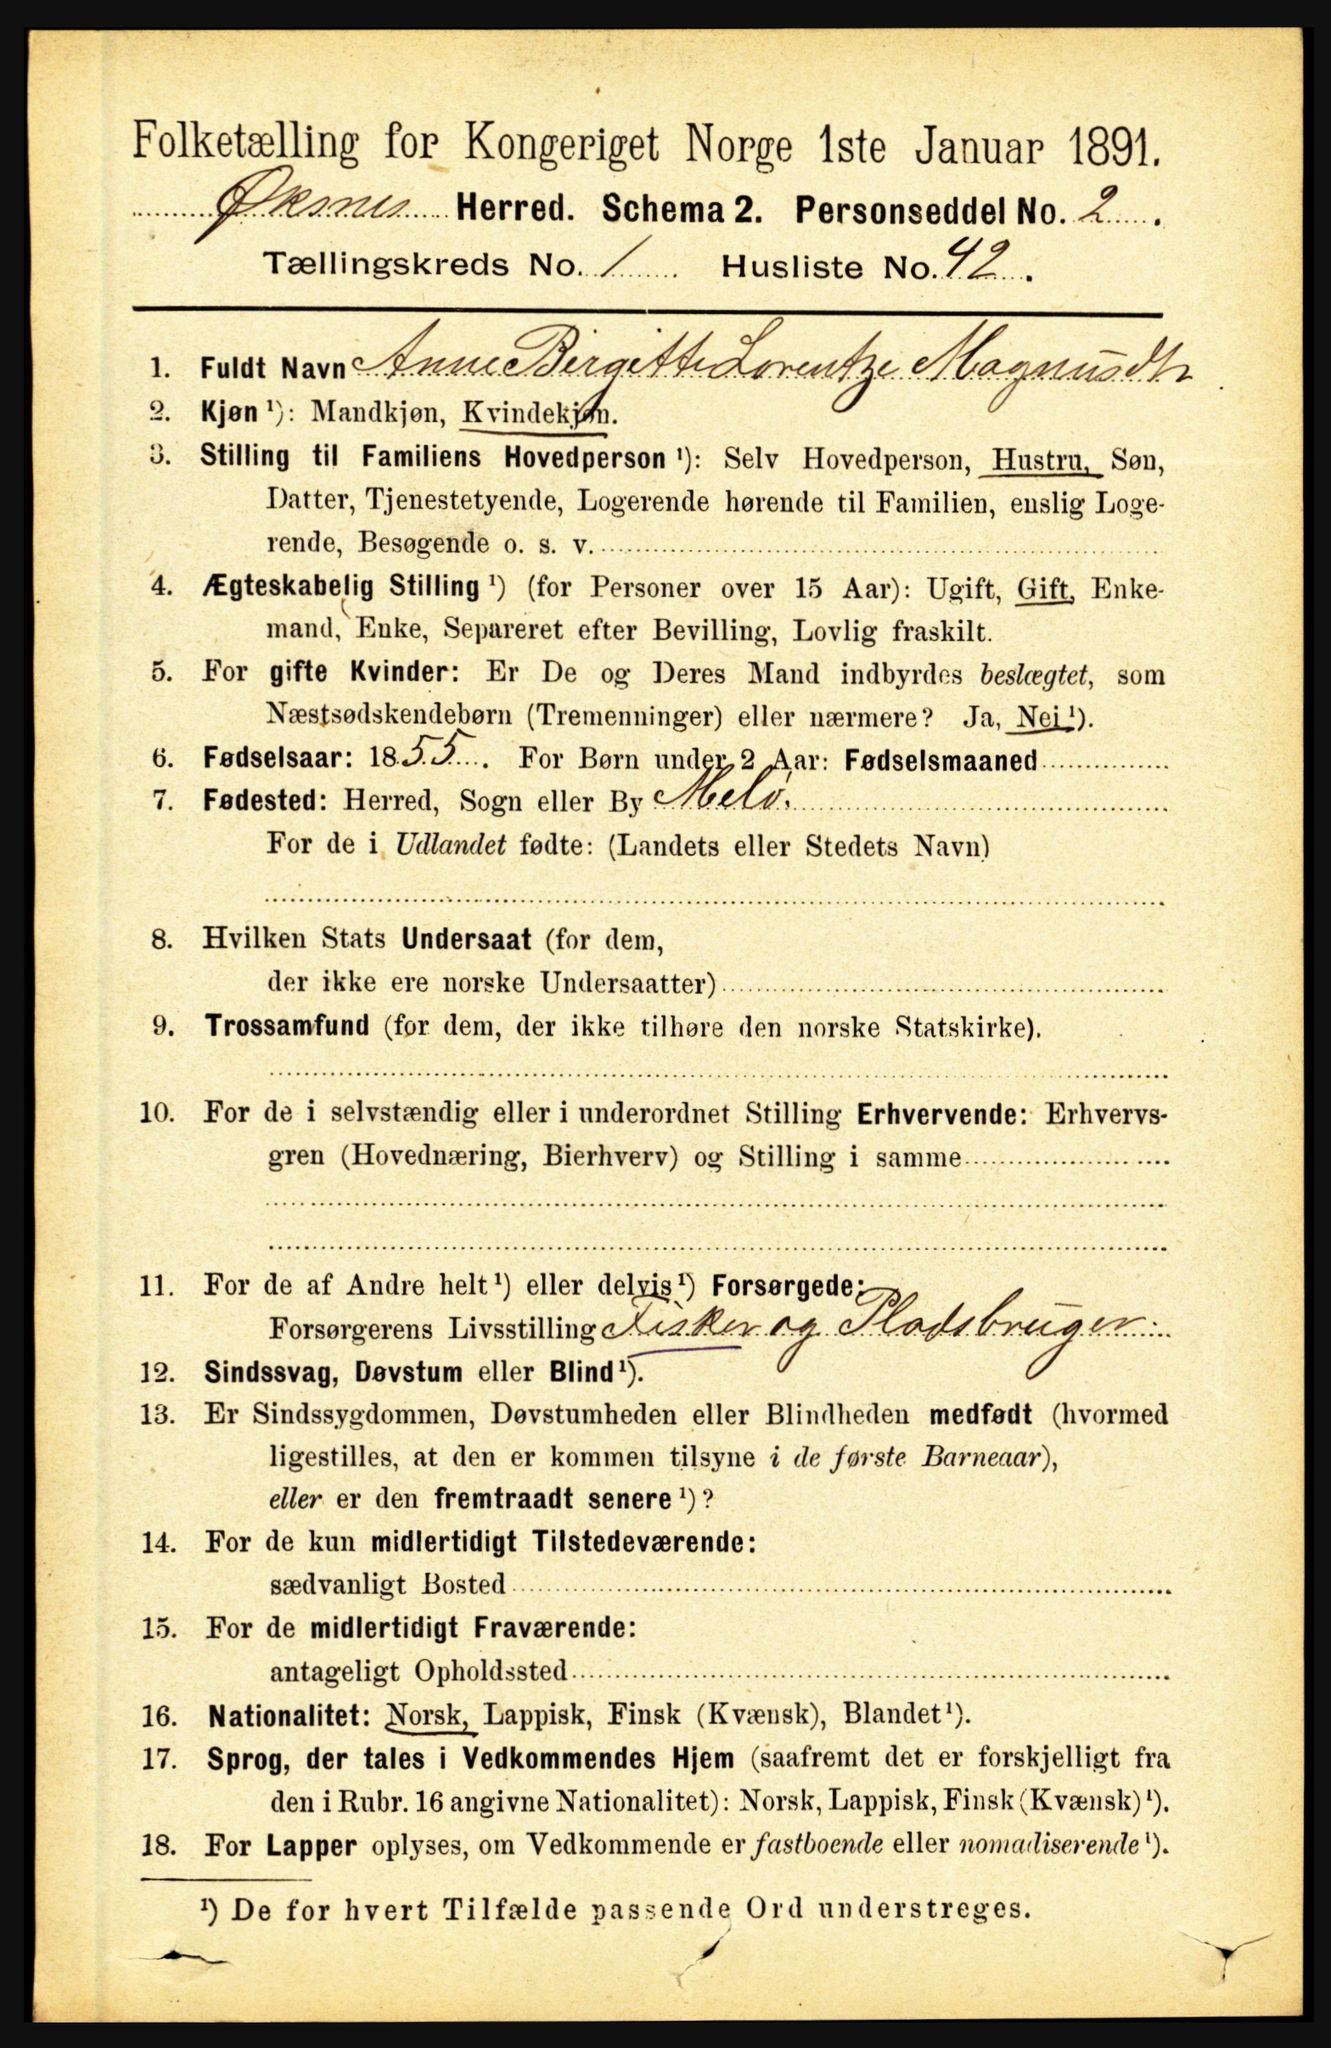 Folketælling for Kongeriget Norge 1ste Januar 1891.
Øksnes Herred. Schema 2. Personseddel No. 2.
Tællingskreds No. 1 Husliste No. 42.
1. Fuldt Navn Anne Birgitte Lorentze Magnusdtr
2. Kjøn ¹): Mandkjøn, Kvindekjøn.
3. Stilling til Familiens Hovedperson ¹): Selv Hovedperson, Hustru, Søn,
Datter, Tjenestetyende, Logerende hørende til Familien, enslig Loge-
rende, Besøgende o. s. v.
4. Ægteskabelig Stilling ¹) (for Personer over 15 Aar): Ugift, Gift, Enke-
mand, Enke, Separeret efter Bevilling, Lovlig fraskilt.
5. For gifte Kvinder: Er De og Deres Mand indbyrdes beslægtet, som
Næstsødskendebørn (Tremenninger) eller nærmere? Ja, Nei ¹).
6. Fødselsaar: 1855. For Børn under 2 Aar: Fødselsmaaned
7. Fødested: Herred, Sogn eller By Melø.
For de i Udlandet fødte: (Landets eller Stedets Navn)
8. Hvilken Stats Undersaat (for dem,
der ikke ere norske Undersaatter)
9. Trossamfund (for dem, der ikke tilhøre den norske Statskirke).
10. For de i selvstændig eller i underordnet Stilling Erhvervende: Erhvervs-
gren (Hovednæring, Bierhverv) og Stilling i samme
11. For de af Andre helt ¹) eller delvis ¹) Forsørgede:
Forsørgerens Livsstilling Fisker og Pladsbruger
12. Sindssvag, Døvstum eller Blind ¹).
13. Er Sindssygdommen, Døvstumheden eller Blindheden medfødt (hvormed
ligestilles, at den er kommen tilsyne i de første Barneaar),
eller er den fremtraadt senere ¹)?
14. For de kun midlertidigt Tilstedeværende:
sædvanligt Bosted
15. For de midlertidigt Fraværende:
antageligt Opholdssted
16. Nationalitet: Norsk, Lappisk, Finsk (Kvænsk), Blandet ¹).
17. Sprog, der tales i Vedkommendes Hjem (saafremt det er forskjelligt fra
den i Rubr. 16 angivne Nationalitet): Norsk, Lappisk, Finsk (Kvænsk) ¹).
18. For Lapper oplyses, om Vedkommende er fastboende eller nomadiserende ¹).
¹) De for hvert Tilfælde passende Ord understreges.